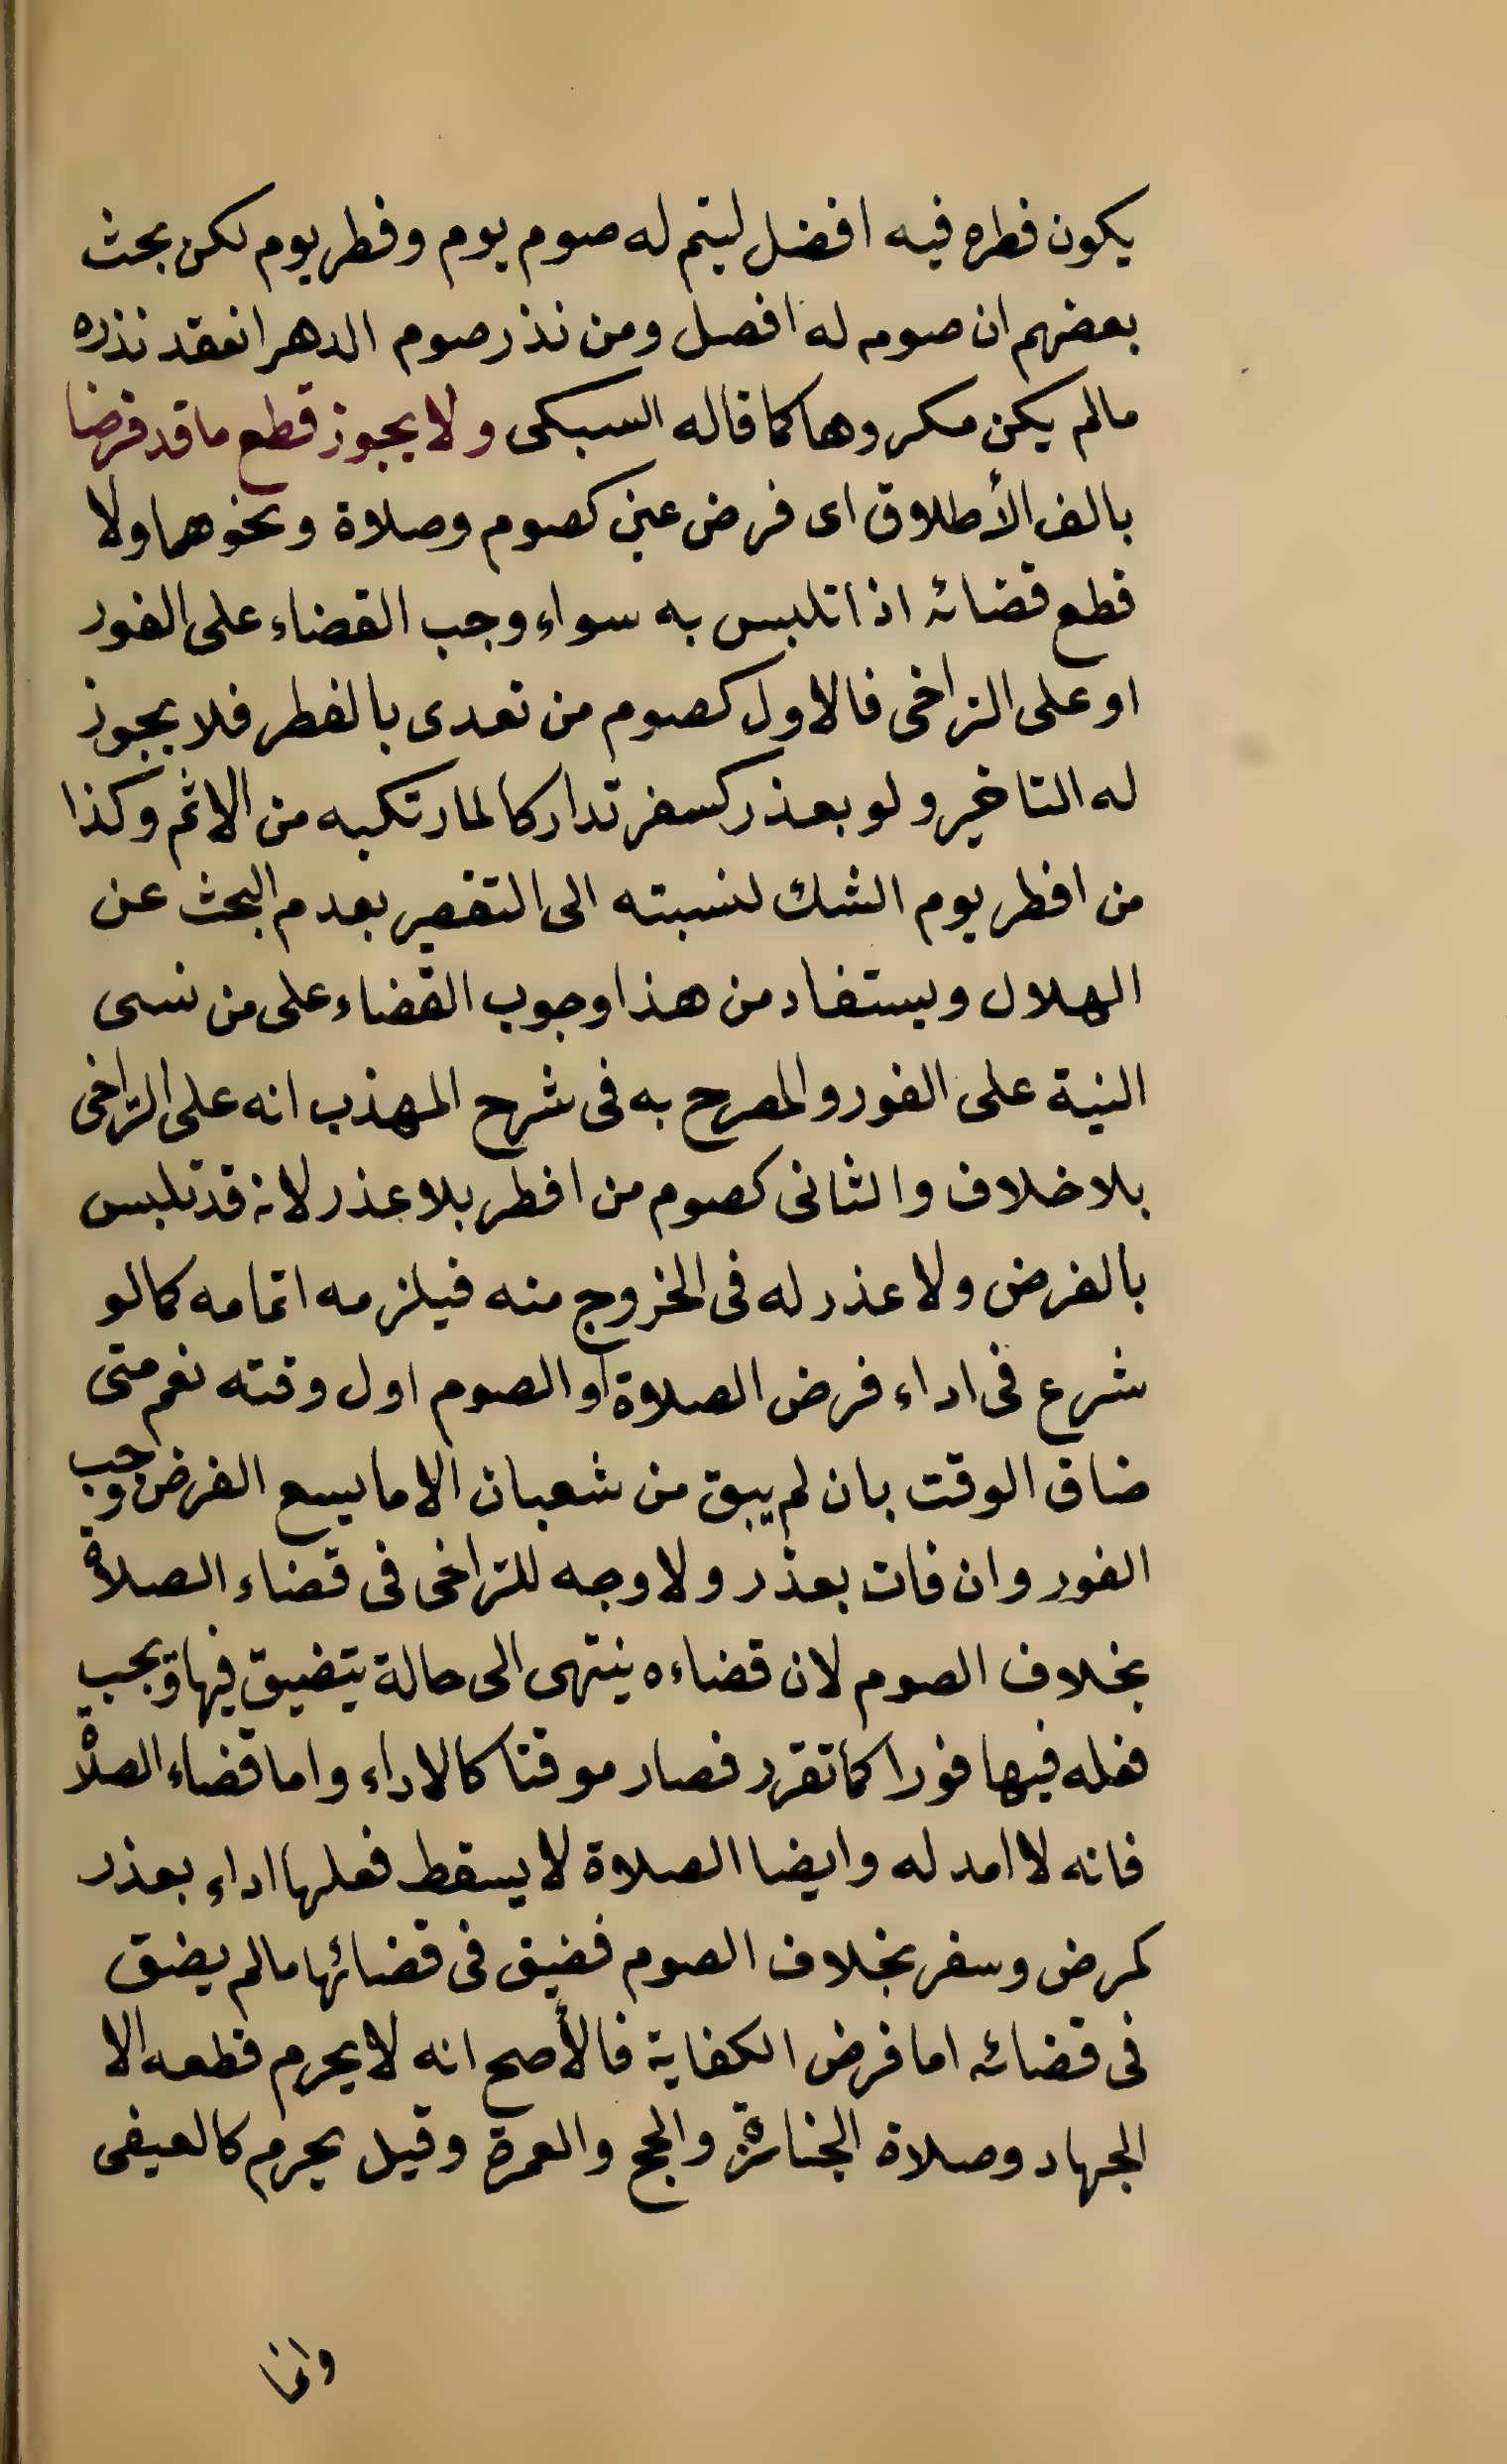 يكون فطره فيه افضل ليتم له صوم يوم وفطر يوم لكن بحث
بعضهم ان صومه له افصل ومن نذر صوم الدهر انعقد نذره
مالم يكن مكروها كما قاله السبكى ولا يجوز قطع ما قد فرضا
بالف الأطلاق اى فرض عين كصوم وصلاة ونحوهما ولا
قطع قضائه اذا تلبس به سواء وجب القضاء على الفور
او على التراخى فالاول كصوم من تعدى بالفطر فلا يجوز
له التاخير ولو بعذر كسفر تداركا لما ارتكبه من الاثم وكذا
من افطر يوم الشك لنسبته الى التقصير بعدم البحث عن
الهلال ويستفاد من هذا وجوب القضاء على من نسى
النية على الفور والمصرح به فى شرح المهذب انه على التراخى
بلا خلاف والثانى كصوم من افطر بلا عذر لانه قد تلبس
بالفرض ولا عذر له فى الخروج منه فيلزمه اتمامه كما لو
شرع فى اداء فرض الصلاة او الصوم اول وقته نعم متى
ضاق الوقت بان لم يبق من شعبان الا ما يسع الفرض وجب
الفور وان فات بعذر ولا وجه للتراخى فى قضاء الصلاة
بخلاف الصوم لان قضاءه ينتهى الى حالة يتضيق فيها ويجب
فعله فيها فورا كما تقرر فصار موقتا كالاداء واما قضاء الصلاة
فانه لا امد له وايضا الصلاة لا يسقط فعلها اداء بعذر
كمرض وسفر بخلاف الصوم فضيق فى قضائها مالم يضق
فى قضائه اما فرض الكفاية فالأصح انه لا يحرم قطعه الا
الجهاد وصلاة الجنازة والحج والعمرة وقيل يحرم كالعينى
وانما